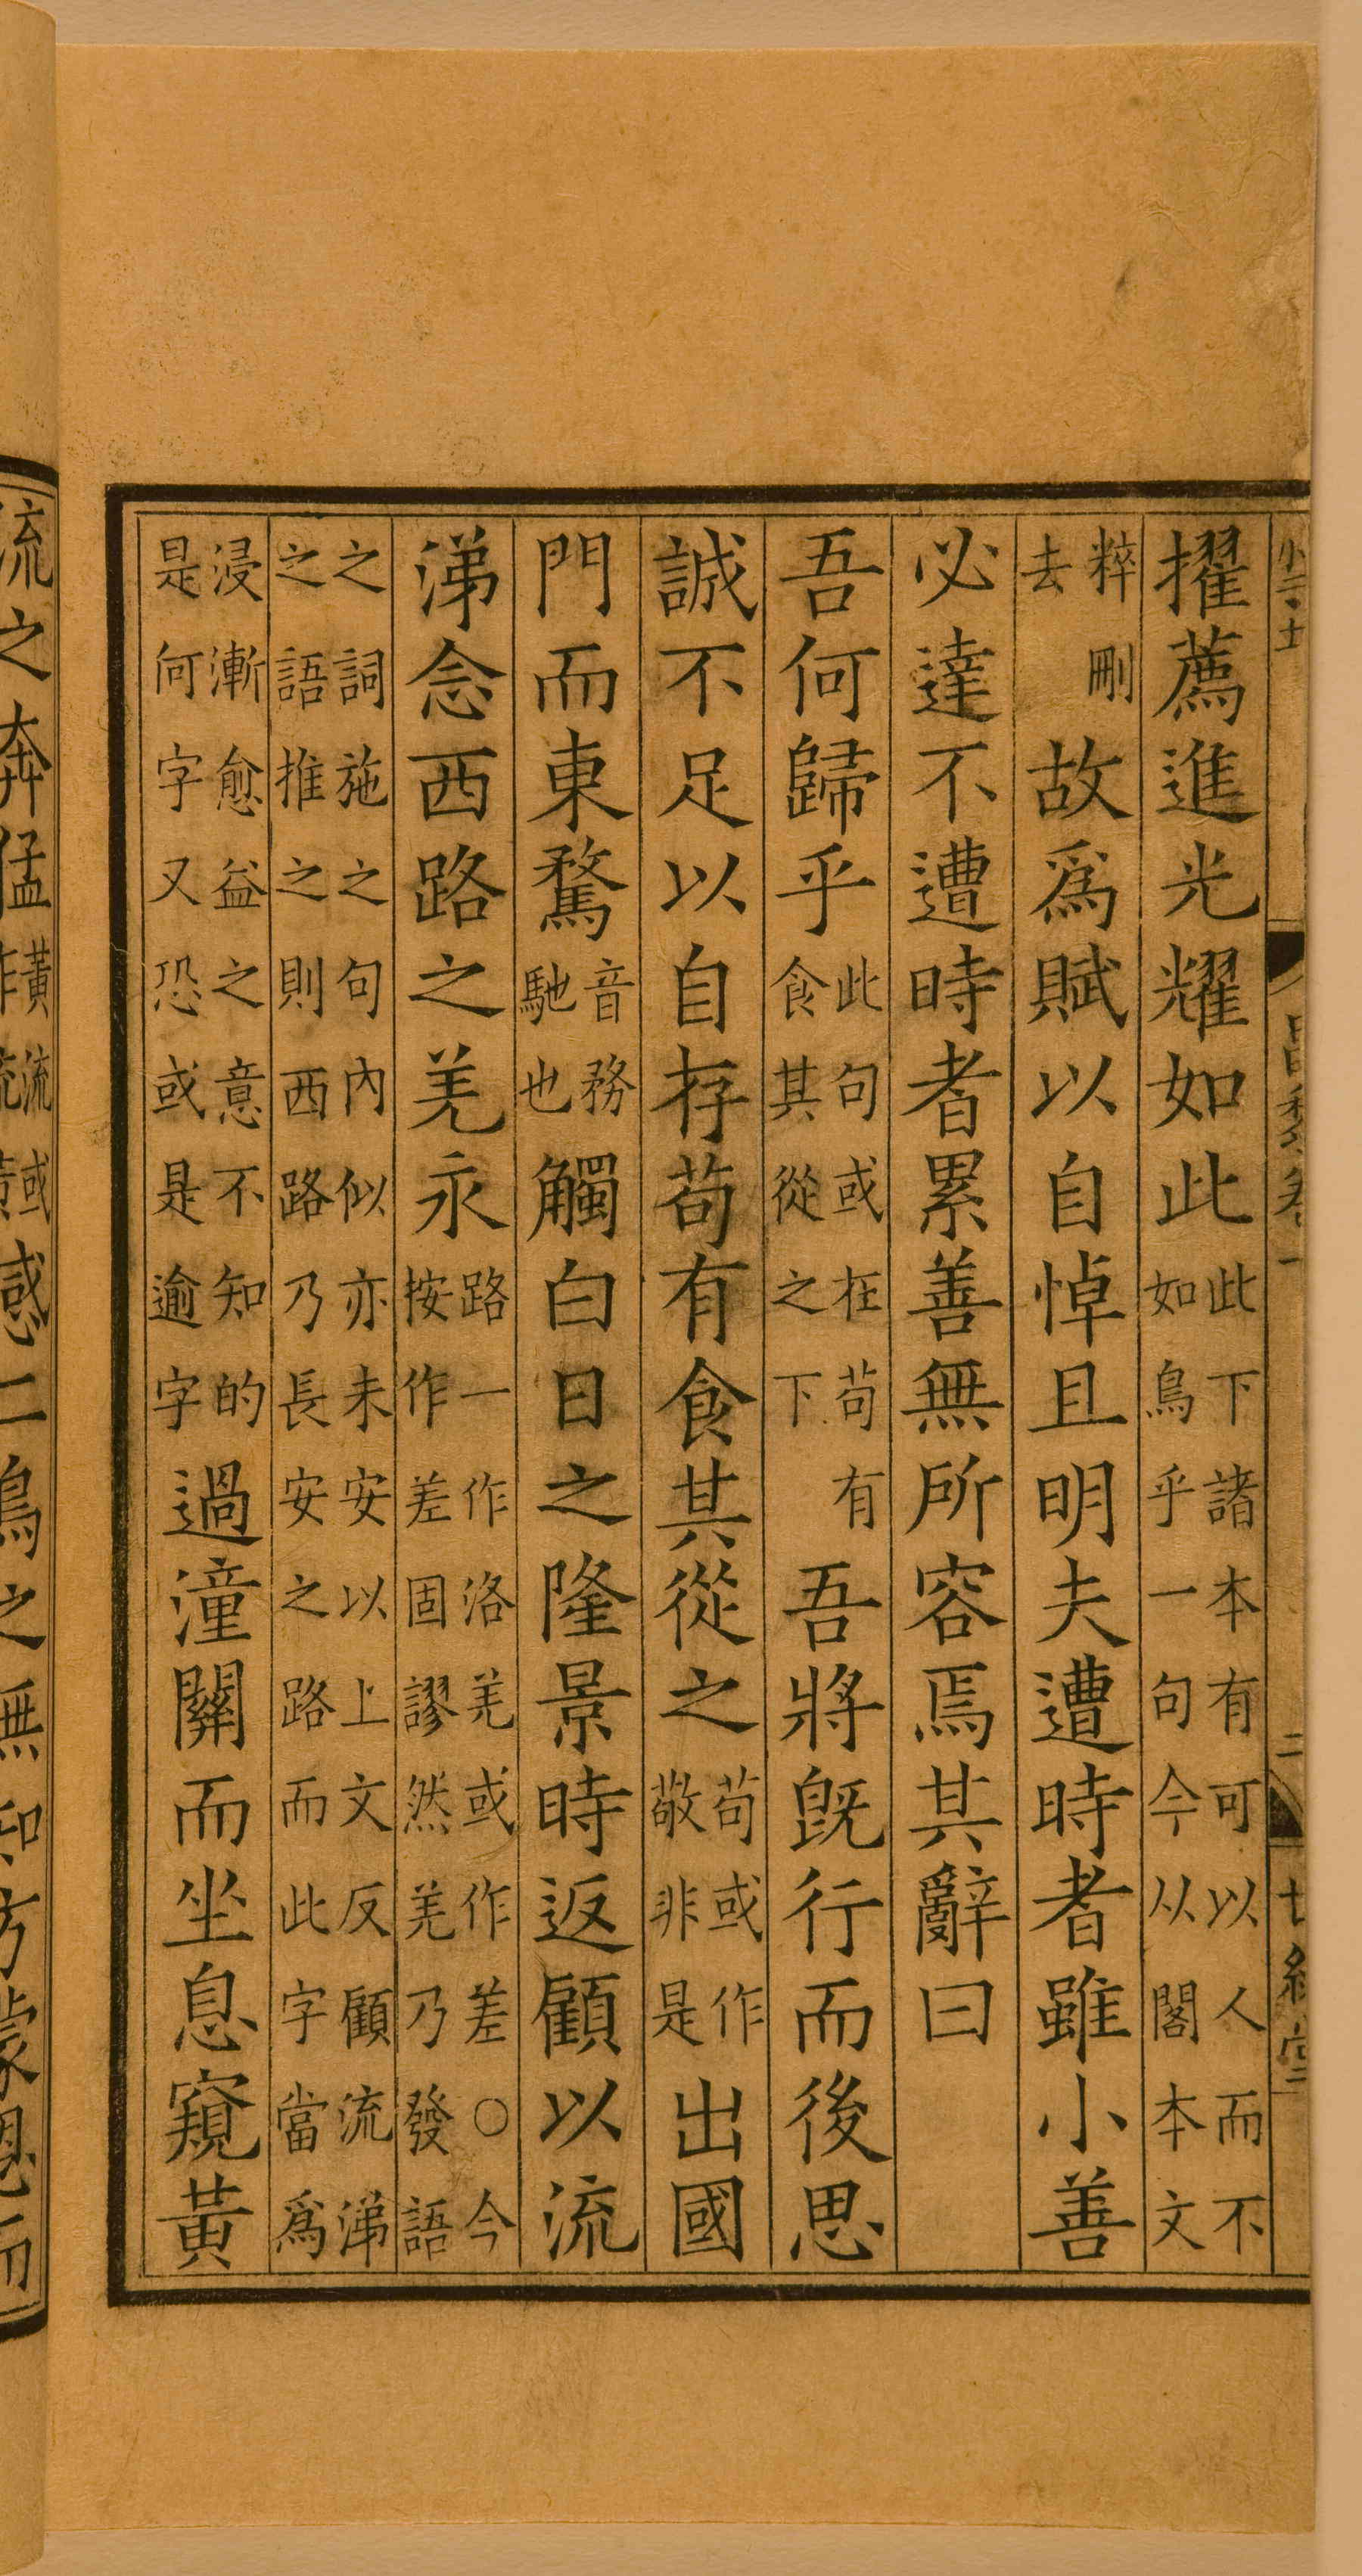 擢薦進光耀如此此下諸本有可以人而不如鳥乎一句今从閣本文
粹刪去故爲賦以自悼且明夫遭時者雖小善
必達不遭時者累善無所容焉其辭曰
吾何歸乎此句或在苟有食其從之下吾將旣行而後思
誠不足以自存苟有食其從之苟或作敬非是出國
門而東騖音務馳也觸白日之隆景時返顧以流
涕念西路之羌永路一作洛羌或作差○今按作差固謬然羌乃發語
之詞施之句內似亦未安以上文反顧流涕之語推之則西路乃長安之路而此字當爲
浸漸愈益之意不知的是何字又恐或是逾字過潼關而坐息窺黃
流之奔猛
感二鳥之無知方蒙恩而